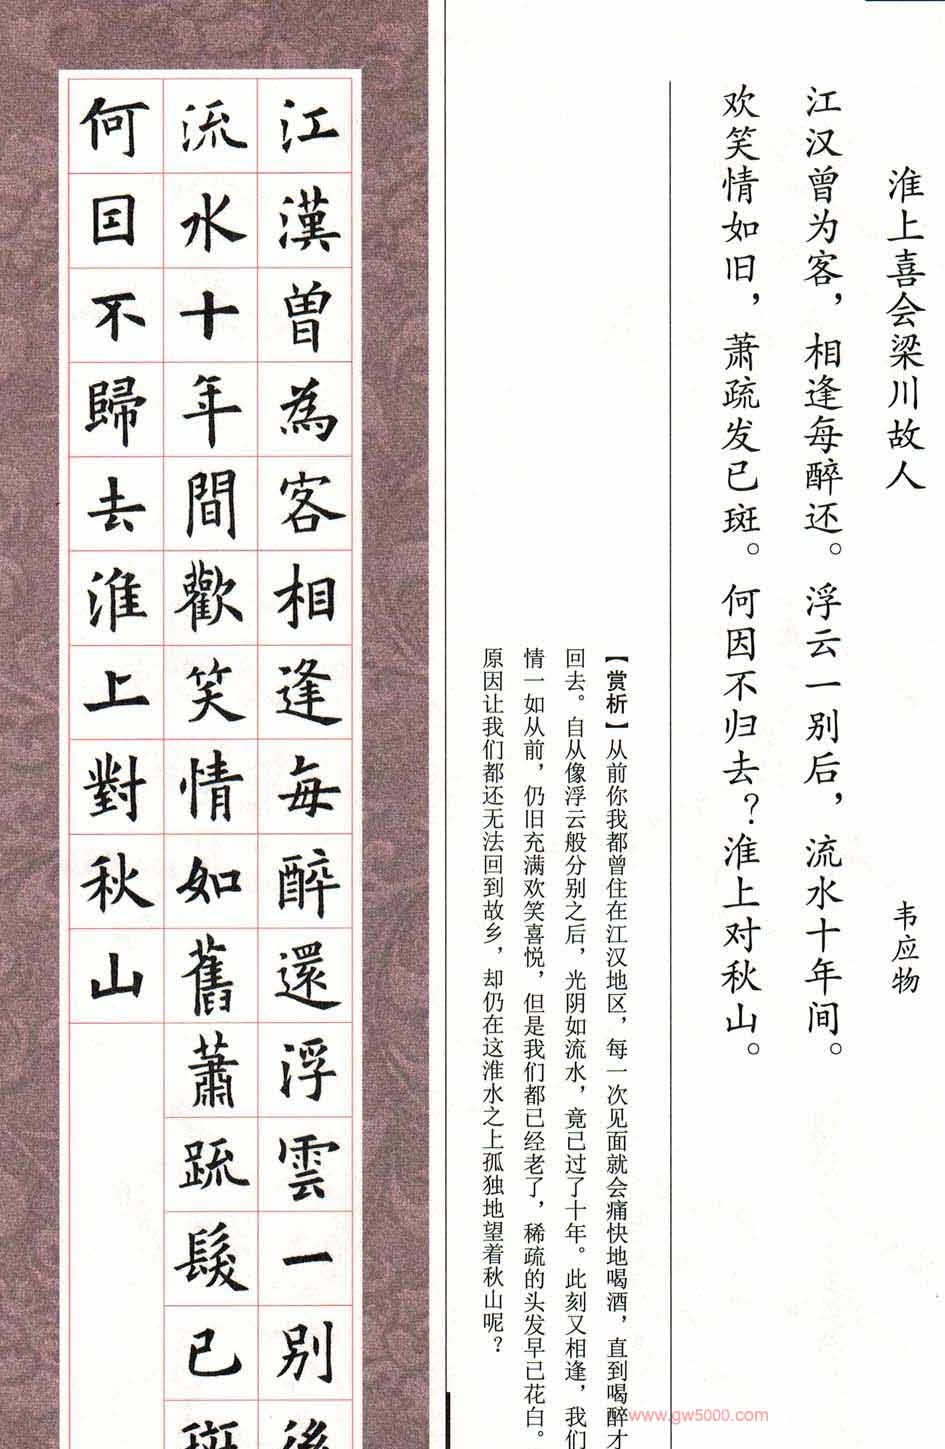 淮上喜会梁川故人
韦应物
江汉曾为客，相逢每醉还。浮云一别后，流水十年间。
欢笑情如旧，萧疏发已斑。何因不归去？淮上对秋山。
【赏析】从前你我都曾住在江汉地区，每一次见面就会痛快地喝酒，直到喝醉才
回去。自从像浮云般分别之后，光阴如流水，竟已过了十年。此刻又相逢，我们
情一如从前，仍旧充满欢笑喜悦，但是我们都已经老了，稀疏的头发早已花白。
原因让我们都还无法回到故乡，却仍在这淮水之上孤独地望着秋山呢？
江漢曾為客相逢每醉還浮雲一别後
流水十年間歡笑情如舊蕭疏髮已斑
何囙不歸去淮上對秋山
www.gw5000.com